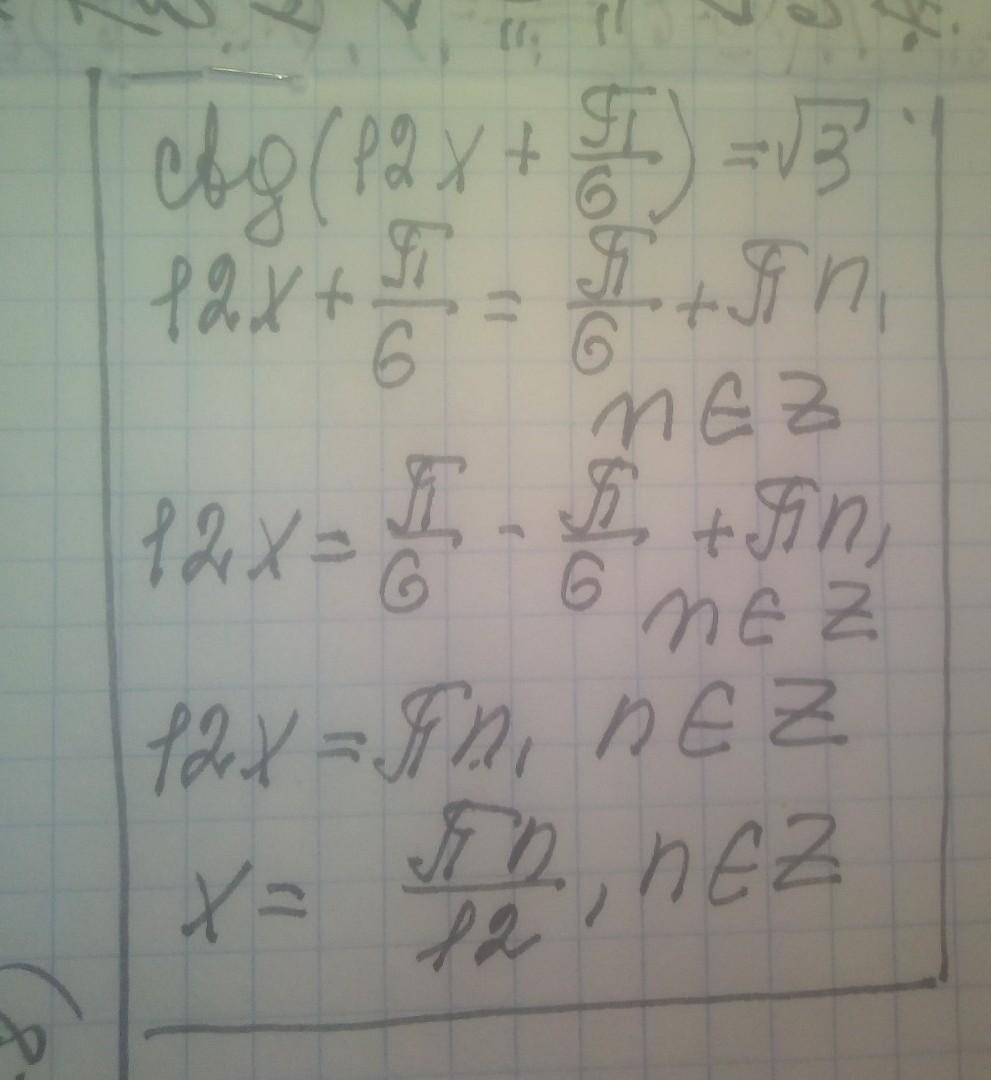 ctg(12x + π/6) = √3
12x + π/6 = π/6 + πn,
n ∈ Z
12x = π/6 - π/6 + πn,
n ∈ Z
12x = πn, n ∈ Z
x = πn/12, n ∈ Z